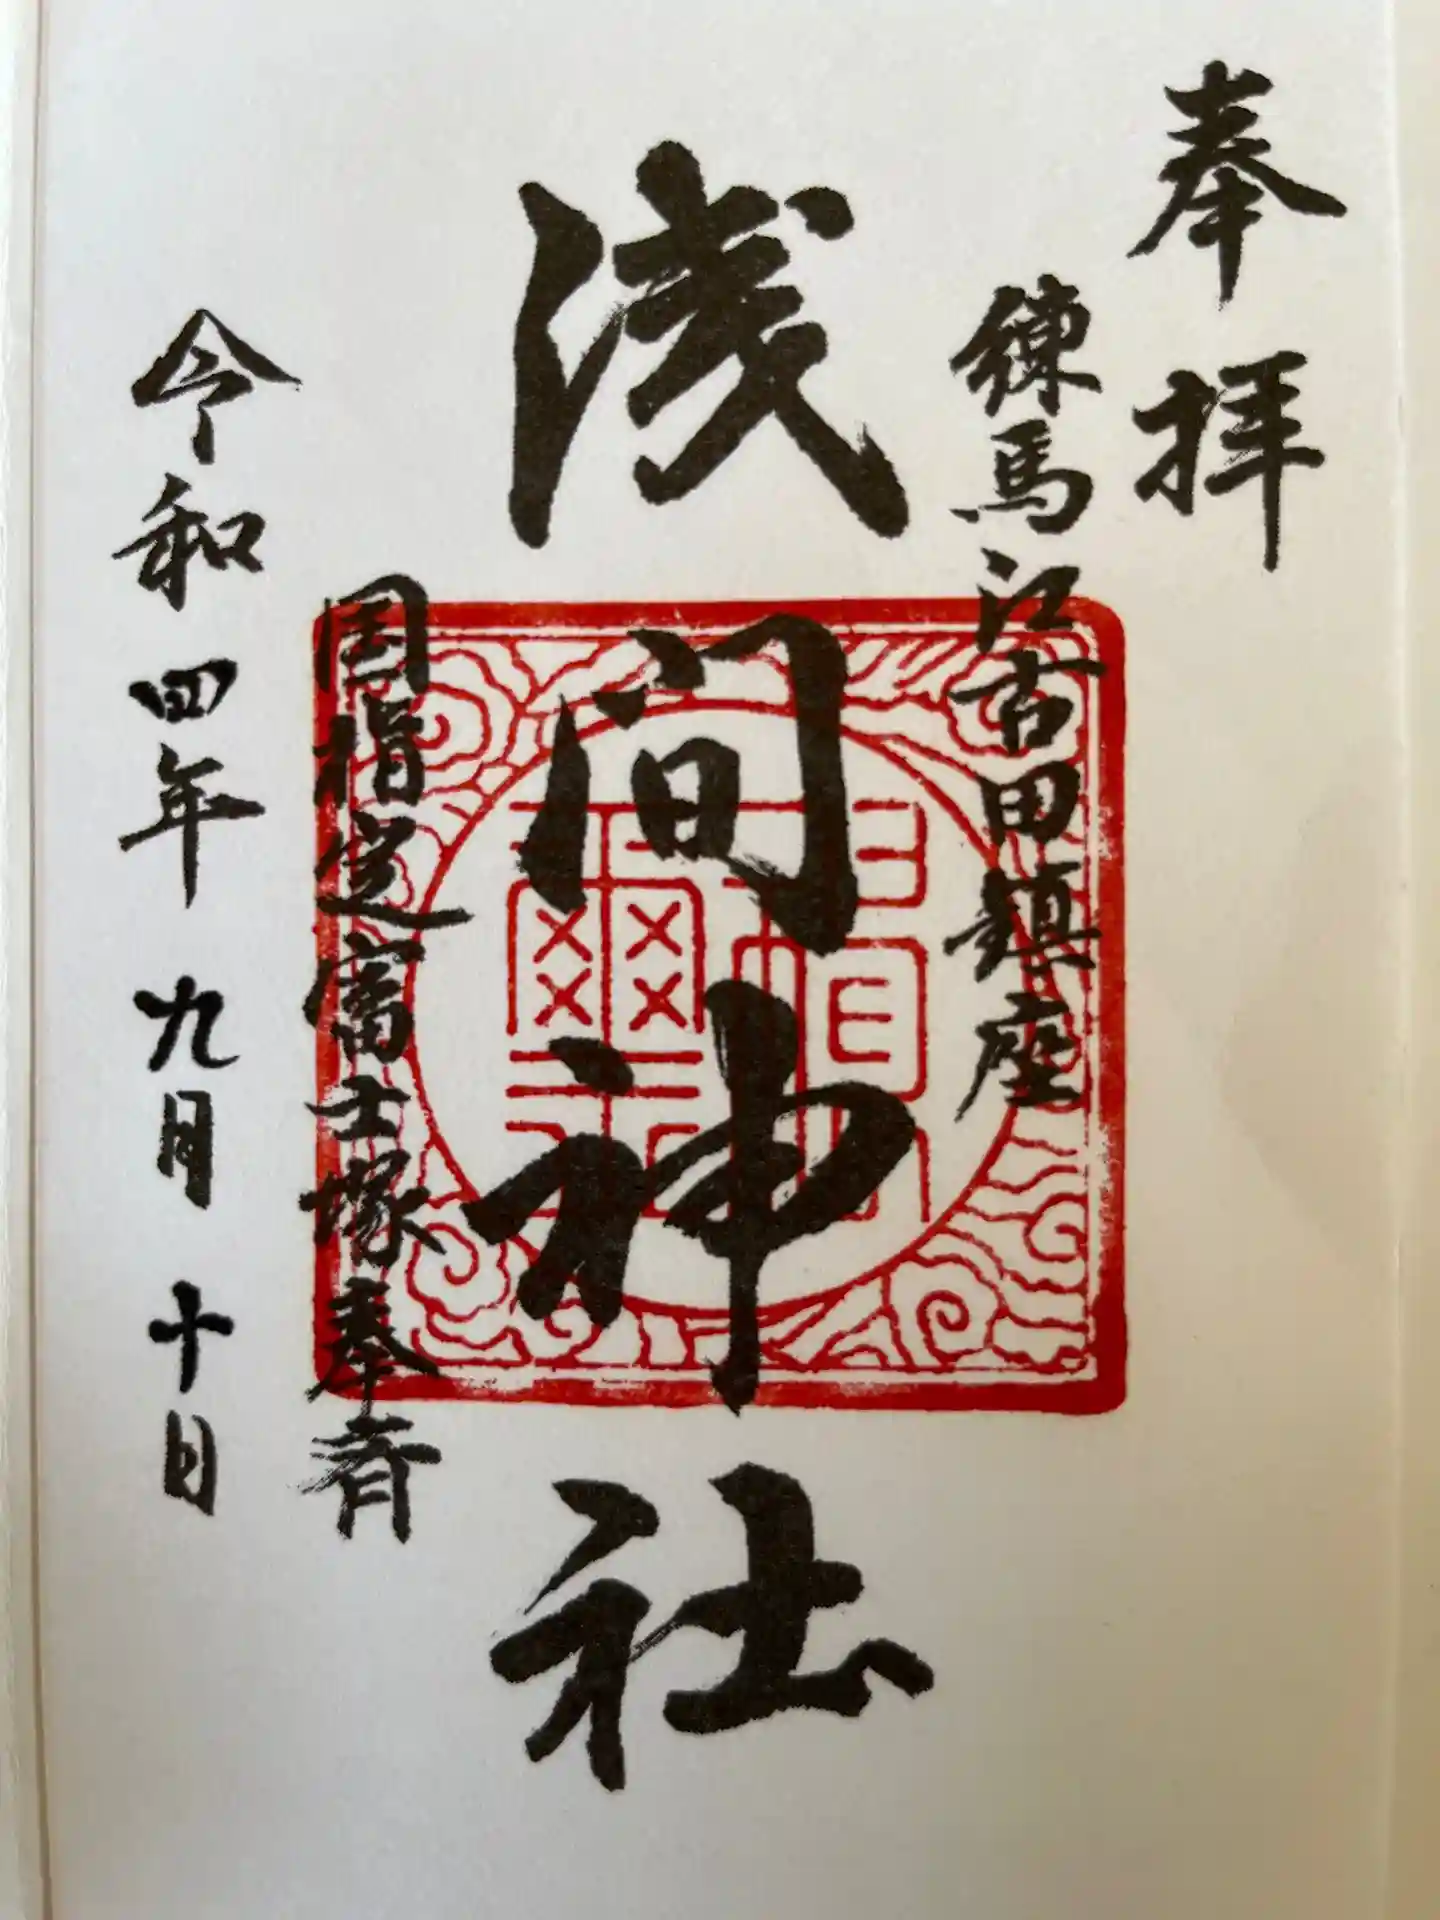 奉拝
練馬江古田鎮座
浅間神社
国指定富士塚奉斎
令和四年九月十日